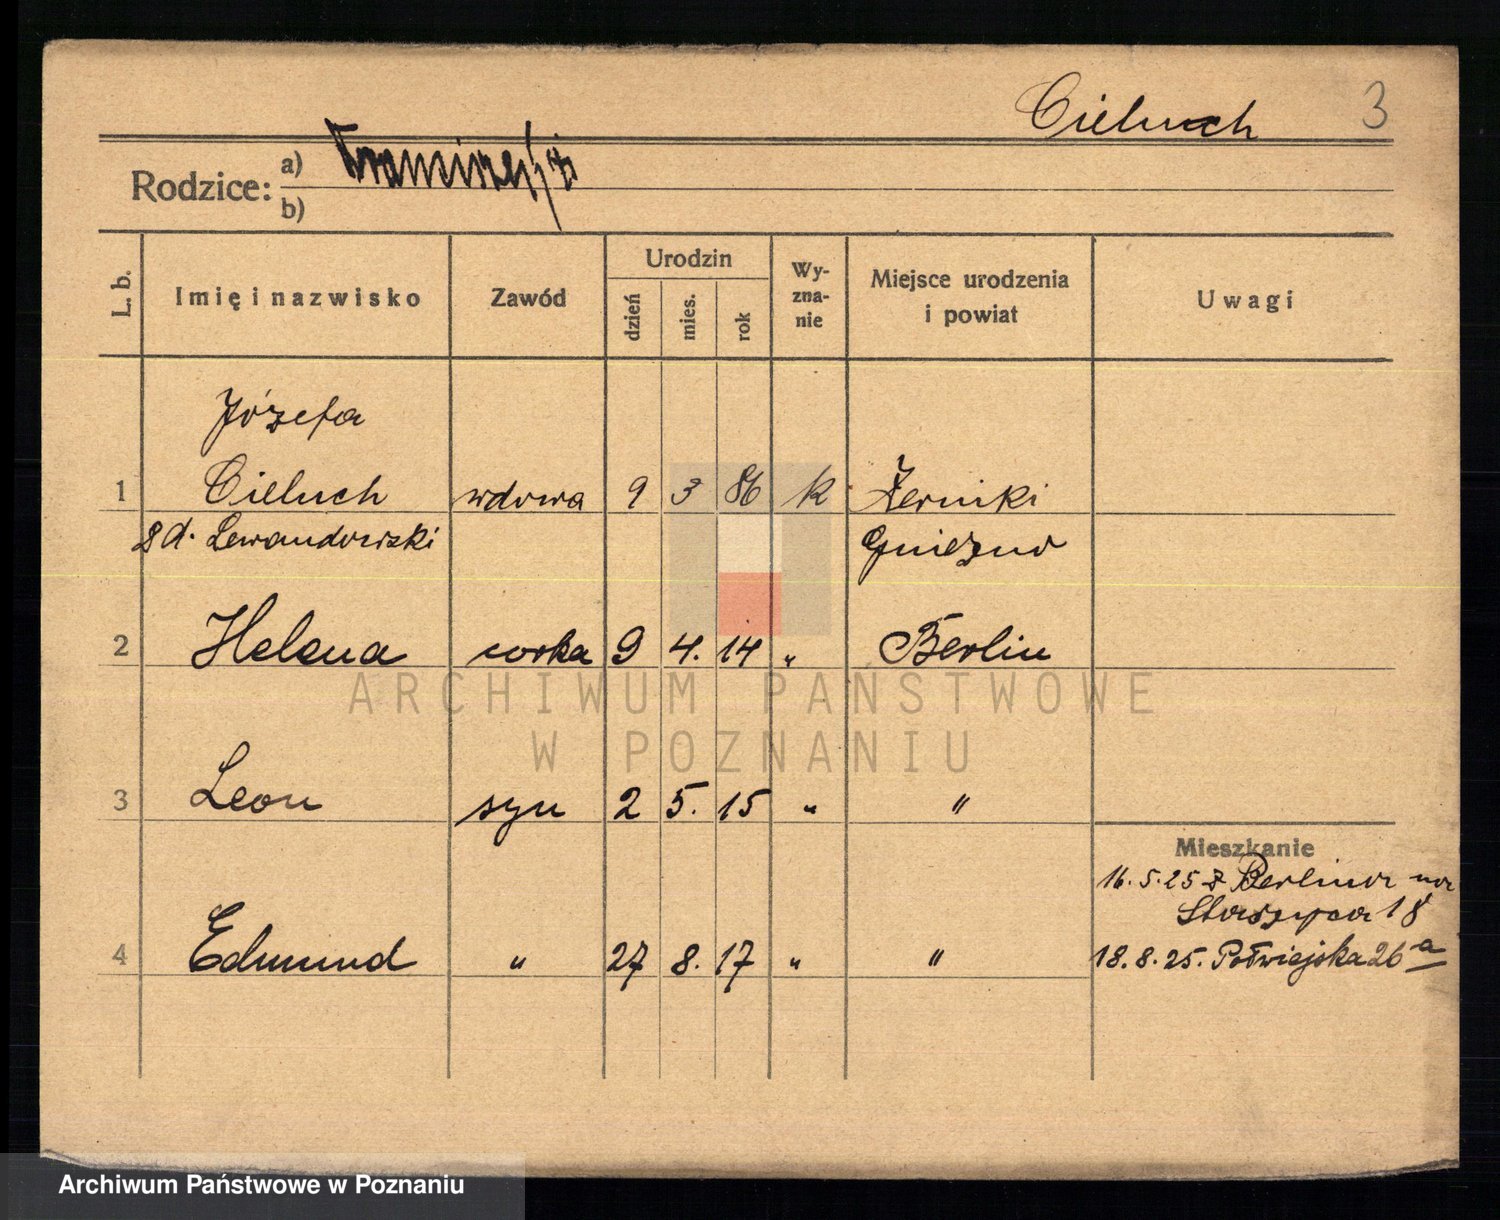 Cieluch 3
Rodzice: a)
b)
L. b. Imię i nazwisko Zawód Urodzin dzień mies. rok Wy-zna-nie Miejsce urodzenia i powiat Uwagi
Józefa
1 Cieluch wdowa 9 3 86 k Żerniki
Lewandowski Gniezno
2 Helena corka 9 4. 14 " Berlin
ARCHIWUM PAŃSTWOWE
W POZNANIU
3 Leon syn 2 5. 15 " "
Mieszkanie
16.5.25 z Berlina na
Staszyca 18
4 Edmund " 27 8. 17 " " 18.8.25. Półwiejska 26 a
Archiwum Państwowe w Poznaniu